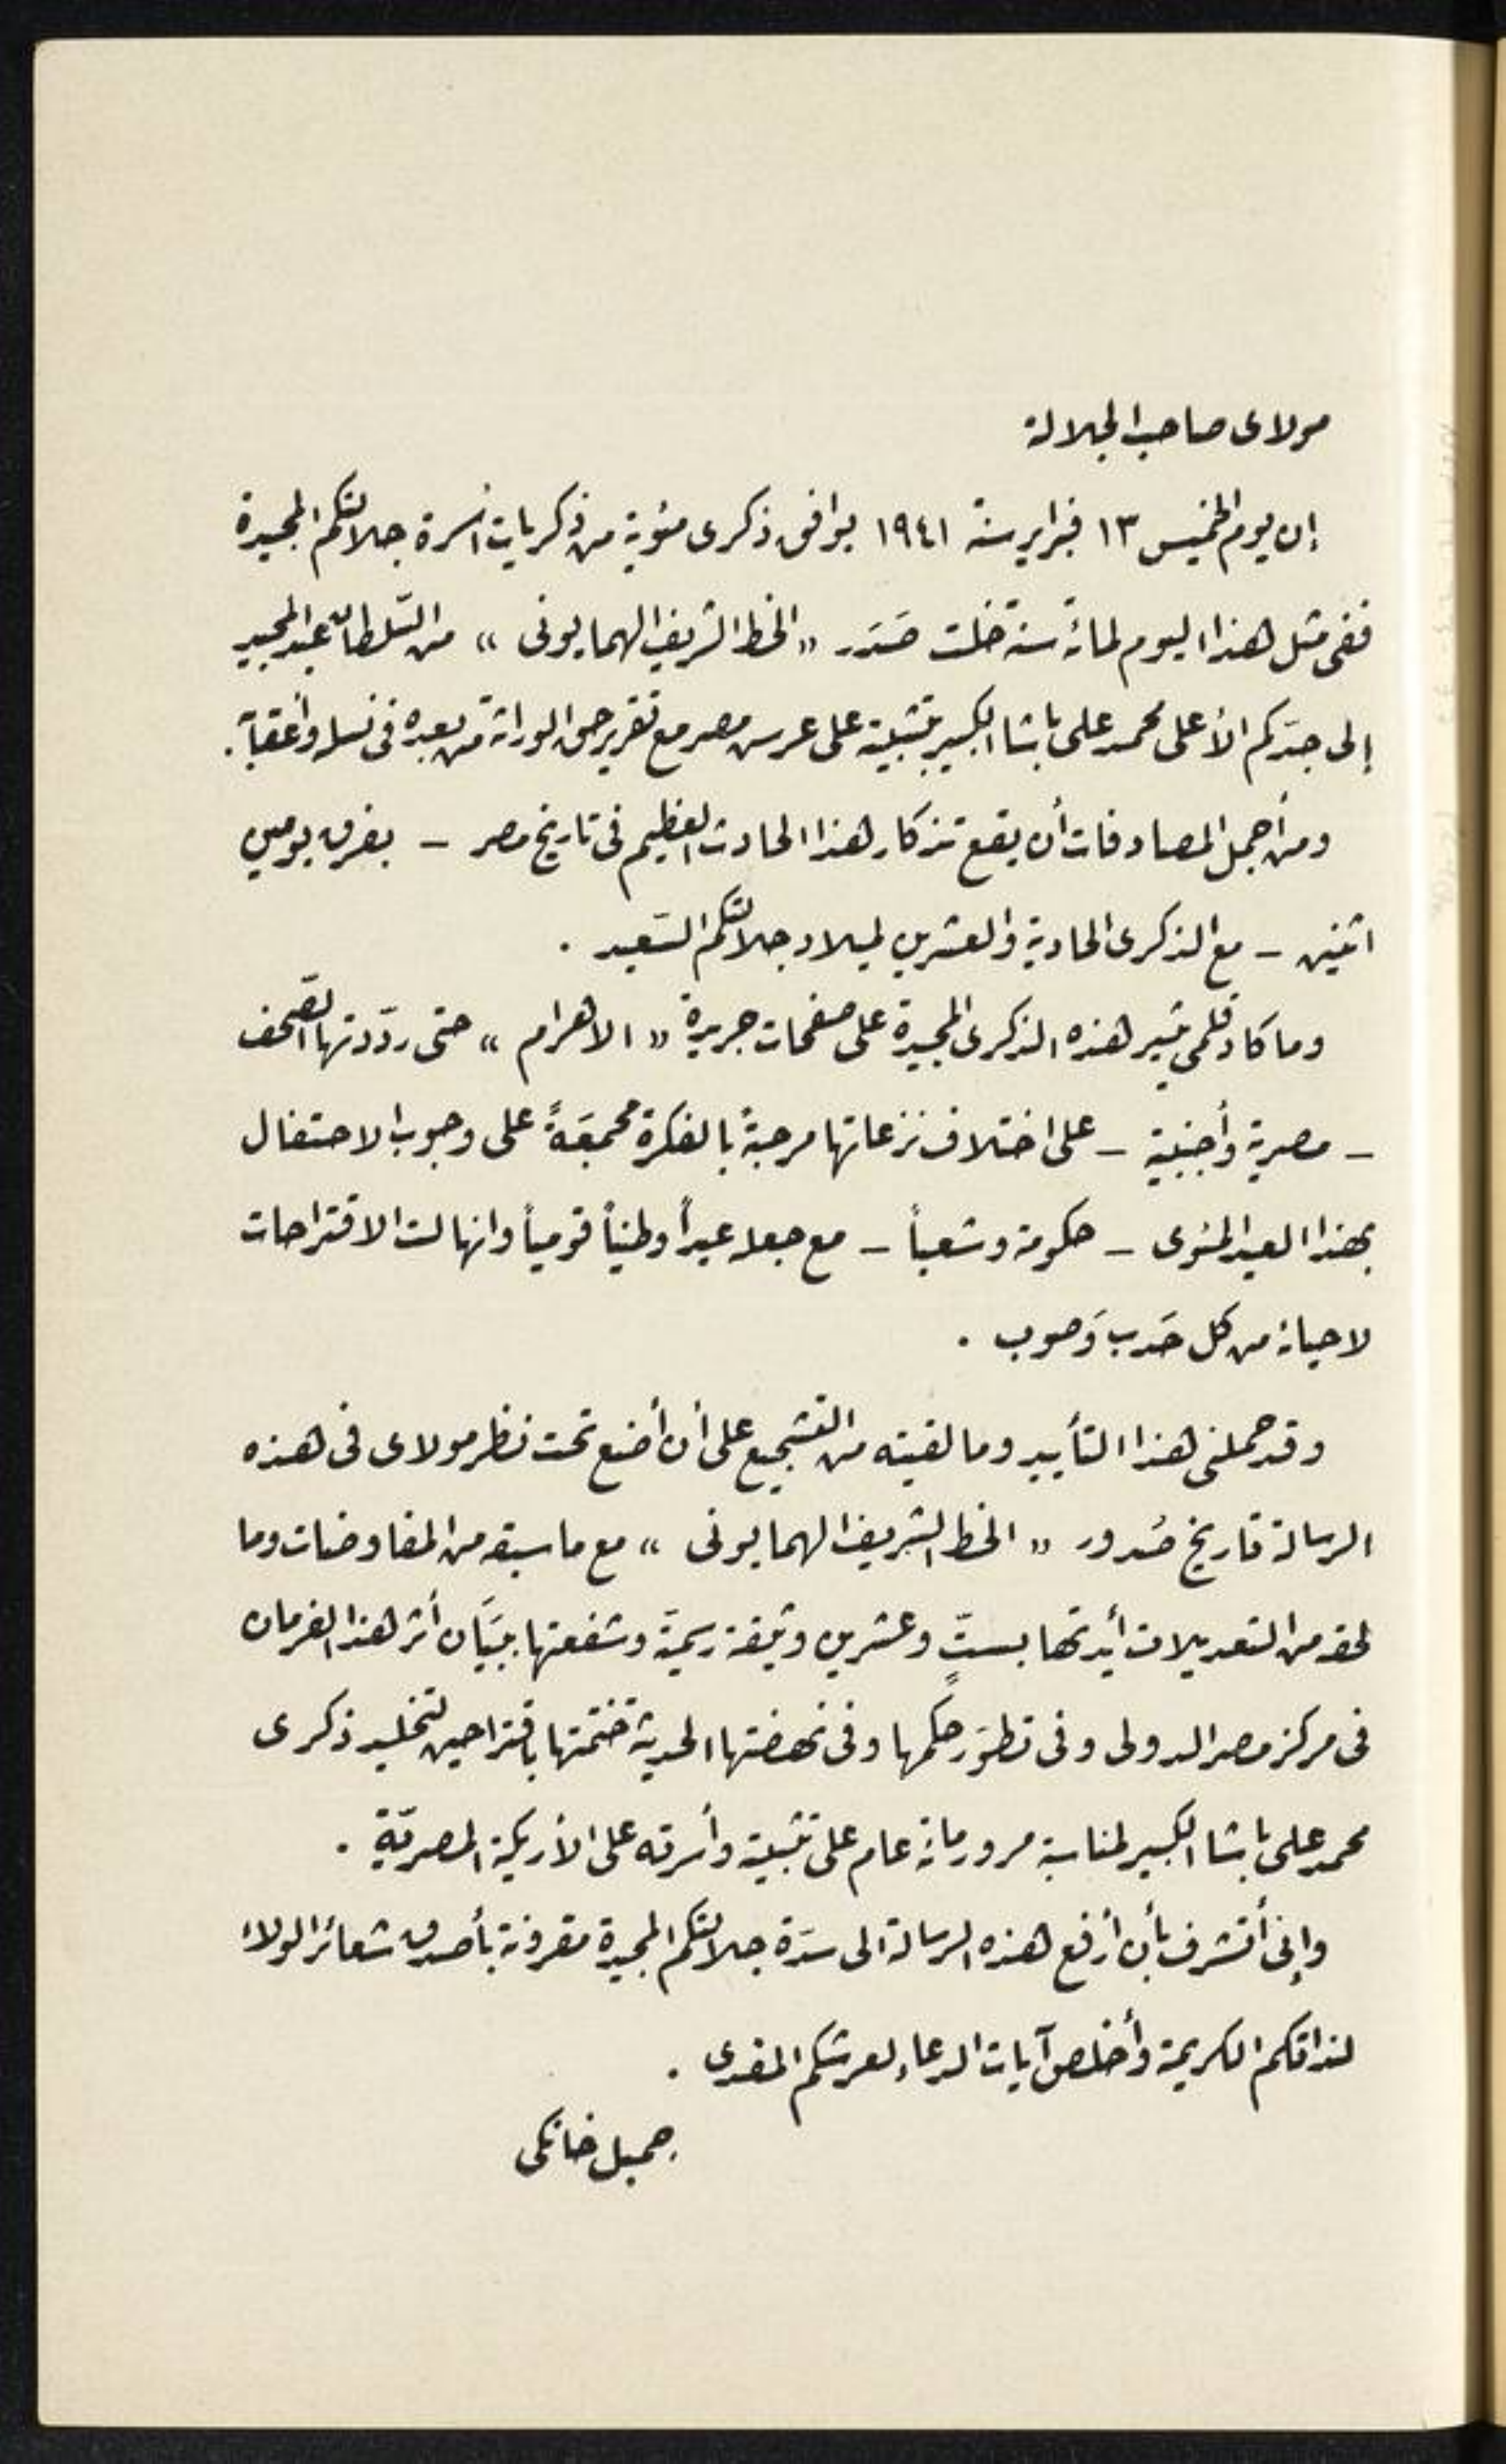 مولاى صاحب الجلالة
إن يوم الخميس ١٣ فبراير سنة ١٩٤١ يوافق ذكرى مئوية من ذكريات أسرة جلالتكم المجيدة
ففى مثل هذا اليوم لمائة سنة خلت صَدَر « الخط الشريف الهمايونى » من السّلطان عبد المجيد
إلى جدّكم الأعلى محمد على باشا الكبير بتثبيته على عرش مصر مع تقرير حق الوراثة من بعده فى نسله وأعقابه .
ومن أجمل المصادفات أن يقع تذكار هذا الحادث العظيم فى تاريخ مصر – بفرق يومين
اثنين – مع الذكرى الحادية والعشرين لميلاد جلالتكم السّعيد .
وما كاد قلمى يثير هذه الذكرى المجيدة على صفحات جريدة « الاهرام » حتى ردّدتها الصّحف
– مصرية وأجنبية – على اختلاف نزعاتها مرحبةً بالفكرة مجمعَةً على وجوب الاحتفال
بهذا العيد المئوى – حكومة وشعباً – مع جعله عيداً وطنياً قومياً وانهالت الاقتراحات
لاحيائه من كل حَدب وَصوب .
وقد حملنى هذا التأييد وما لقيته من التشجيع على أن أضع تحت نظر مولاى فى هذه
الرسالة تاريخ صُدور « الخط الشريف الهمايونى » مع ما سبقه من المفاوضات وما
لحقه من التعديلات أيدتها بستٍّ وعشرين وثيقة رسميّة وشفعتها ببيَان أثر هذا الفرمان
فى مركز مصر الدولى وفى تطوّر حكمها وفى نهضتها الحديثة ختمتها باقتراحين لتخليد ذكرى
محمد على باشا الكبير لمناسبة مرور مائة عام على تثبيته وأسرته على الأريكة المصريّة .
وإنى أتشرف بأن أرفع هذه الرسالة الى سدّة جلالتكم المجيدة مقرونة بأصدق شعائر الولاء
لذاتكم الكريمة وأخلص آيات الدعاء لعرشكم المفدى .
جميل خانكى